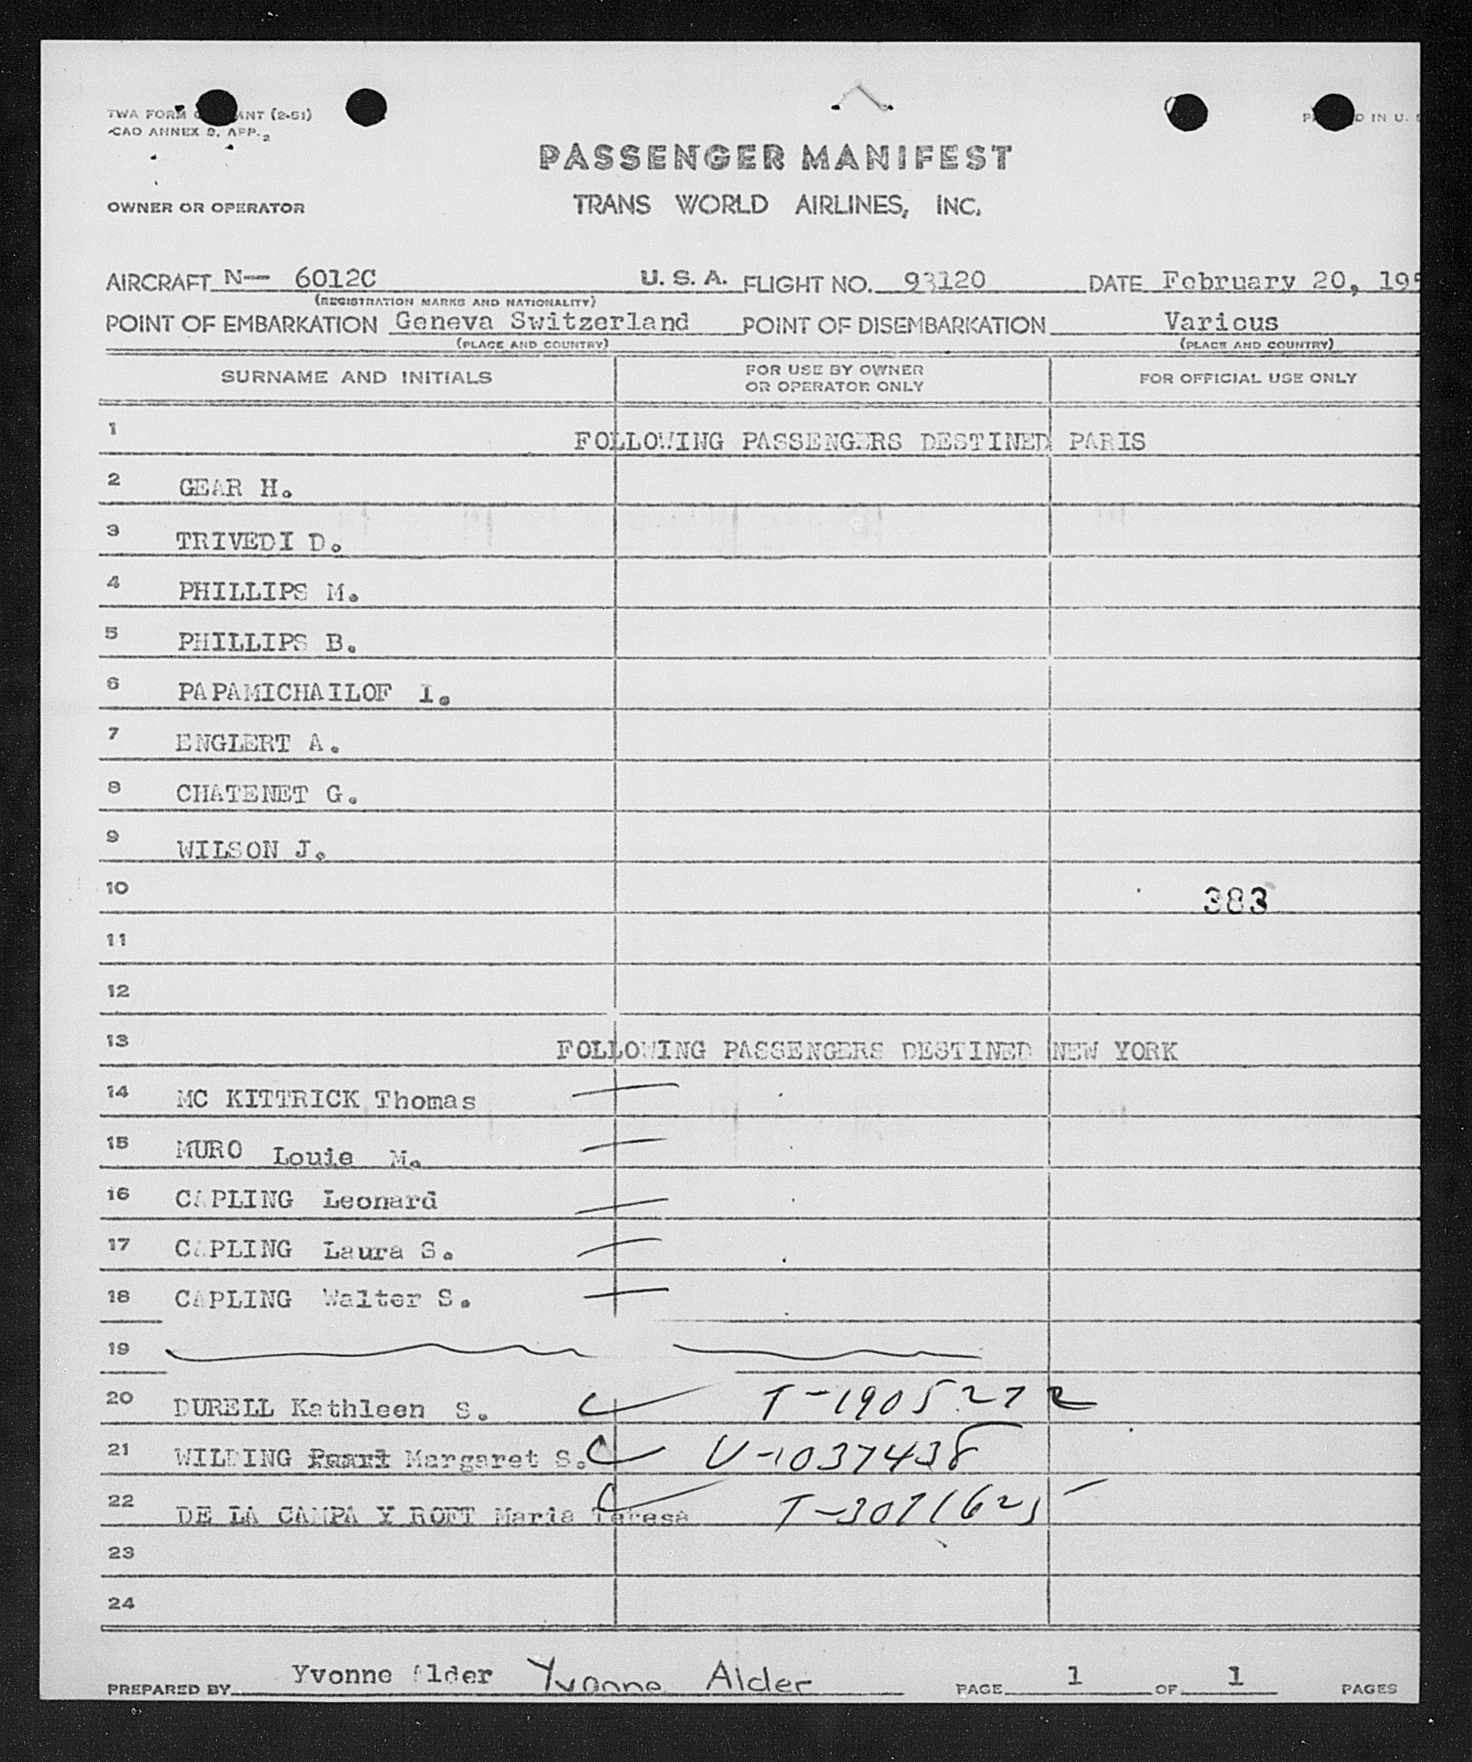 TWA FORM ANT (2-51)
ICAO ANNEX 9, APP. 2
IN U. S
PASSENGER MANIFEST
OWNER OR OPERATOR TRANS WORLD AIRLINES, INC.
AIRCRAFT N— 6012C U. S. A. FLIGHT NO. 93120 DATE February 20, 195
(REGISTRATION MARKS AND NATIONALITY)
POINT OF EMBARKATION Geneva Switzerland POINT OF DISEMBARKATION Various
(PLACE AND COUNTRY) (PLACE AND COUNTRY)
SURNAME AND INITIALS FOR USE BY OWNER OR OPERATOR ONLY FOR OFFICIAL USE ONLY
1 FOLLOWING PASSENGERS DESTINED PARIS
2 GEAR H.
3 TRIVEDI D.
4 PHILLIPS M.
5 PHILLIPS B.
6 PAPAMICHAILOF I.
7 ENGLERT A.
8 CHATENET G.
9 WILSON J.
10 383
11
12
13 FOLLOWING PASSENGERS DESTINED NEW YORK
14 MC KITTRICK Thomas
15 MURO Louie M.
16 CAPLING Leonard
17 CAPLING Laura S.
18 CAPLING Walter S.
19
20 DURELL Kathleen S. T-1905272
21 WILDING Margaret S. V-1037438
22 DE LA CAMPA Y ROFT Maria Teresa T-3071625
23
24
PREPARED BY Yvonne Alder Yvonne Alder PAGE 1 OF 1 PAGES